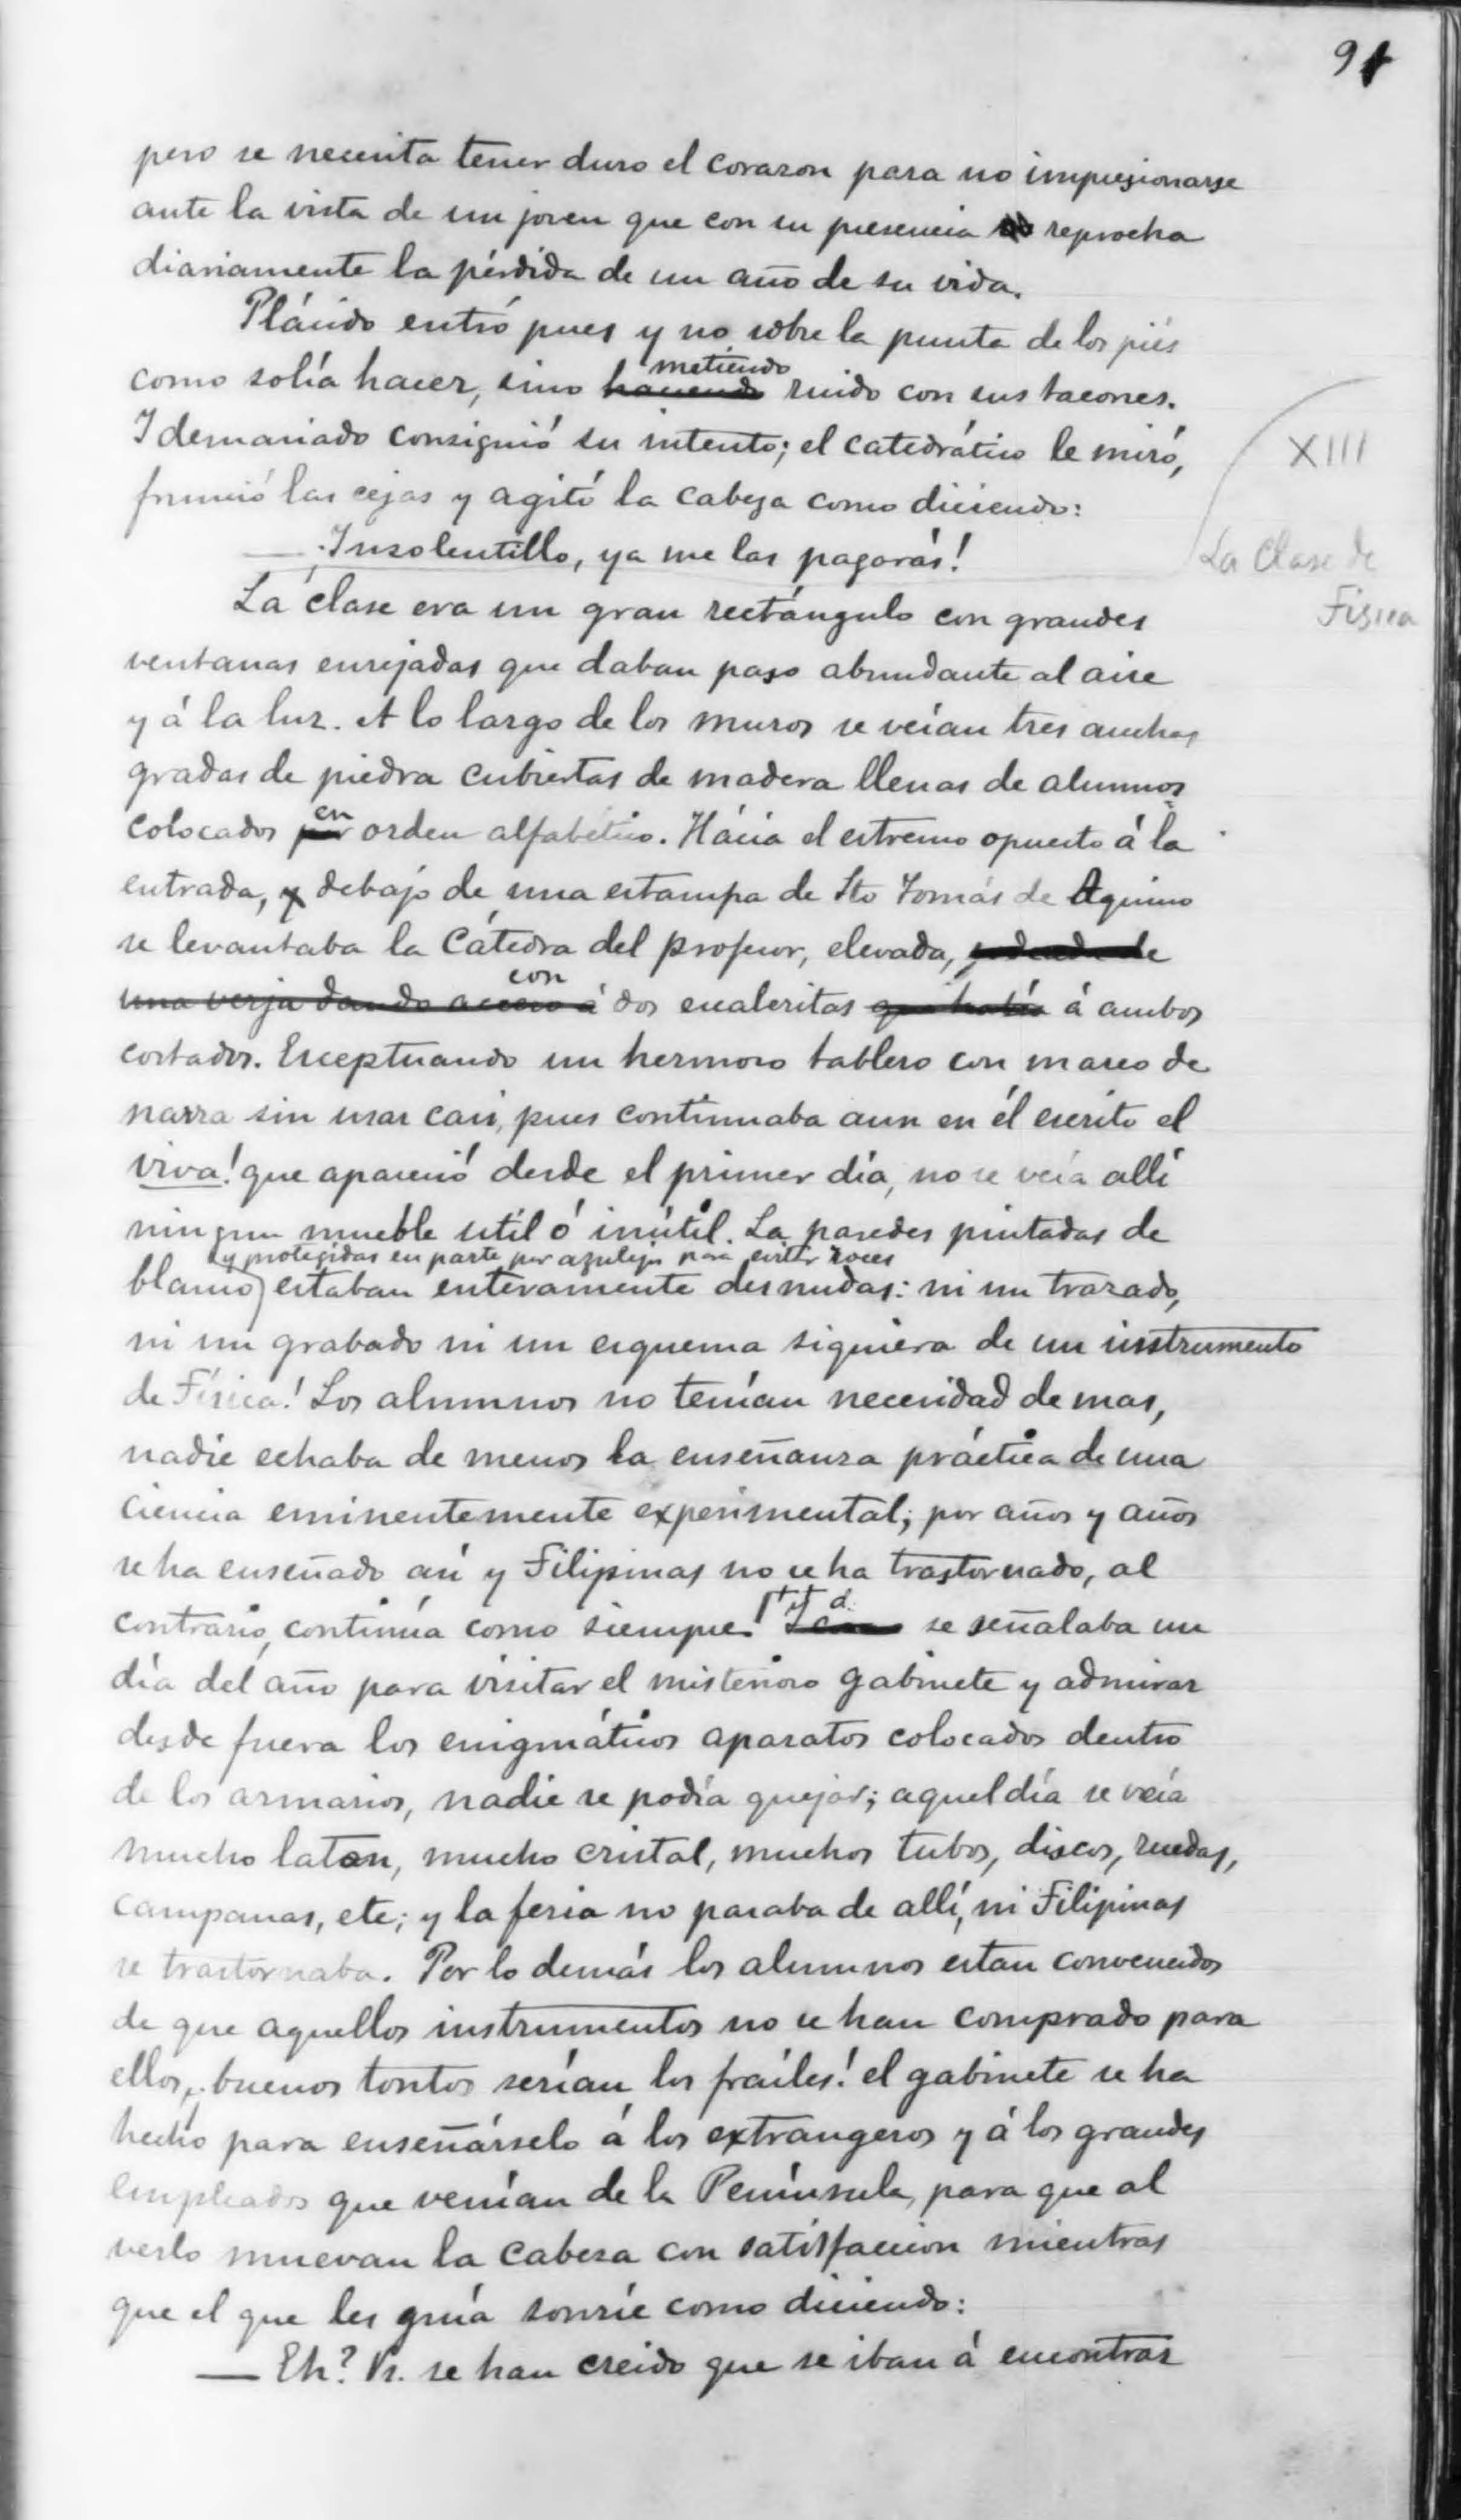 91
pero se necesita tener duro el corazon para no impresionarse
ante la vista de un joven que con su presencia reprocha
diariamente la pérdida de un año de su vida.
Plácido entró pues y no sobre la punta de los piés
como solía hacer, sino haciendo metiendo ruido con sus tacones.
I demasiado consiguió su intento; el catedrático le miró,
frunció las cejas y agitó la cabeza como diciendo:
— ¡Insolentillo, ya me las pagarás!
XIII
La Clase de
Física
La clase era un gran rectángulo con grandes
ventanas enrejadas que daban paso abundante al aire
y á la luz. A lo largo de los muros se veían tres anchas
gradas de piedra cubiertas de madera llenas de alumnos
colocados por en orden alfabético. Hácia el estremo opuesto á la
entrada, y debajo de una estampa de Sto Tomás de Aquino
se levantaba la Cátedra del profesor, elevada, rodeada de
una verja dando acceso á con dos escaleritas que había á ambos
costados. Esceptuando un hermoso tablero con marco de
narra sin usar casi, pues continuaba aun en él escrito el
viva! que apareció desde el primer día, no se veía allí
ningun mueble util ó inútil. La paredes pintadas de
blanco y protegidas en parte por azulejos para evitar roces estaban enteramente desnudas: ni un trazado,
ni un grabado ni un esquema siquiera de un instrumento
de Física! Los alumnos no tenían necesidad de mas,
nadie echaba de menos la enseñanza práctica de una
ciencia eminentemente experimental; por años y años
se ha enseñado así y Filipinas no se ha trastornado, al
contrario, continúa como siempre. se señalaba un
día del año para visitar el misterioso gabinete y admirar
desde fuera los enigmáticos aparatos colocados dentro
de los armarios, nadie se podía quejar; aquel día se veía
mucho laton, mucho cristal, muchos tubos, discos, ruedas,
campanas, etc; y la feria no pasaba de allí, ni Filipinas
se trastornaba. Por lo demás los alumnos estan convencidos
de que aquellos instrumentos no se han comprado para
ellos, ¡buenos tontos serían los frailes! el gabinete se ha
hecho para enseñárselo á los extrangeros y á los grandes
empleados que venían de la Península, para que al
verlo muevan la cabeza con satisfaccion mientras
que el que les guía sonríe como diciendo:
— Eh? Vs. se han creido que se iban á encontrar